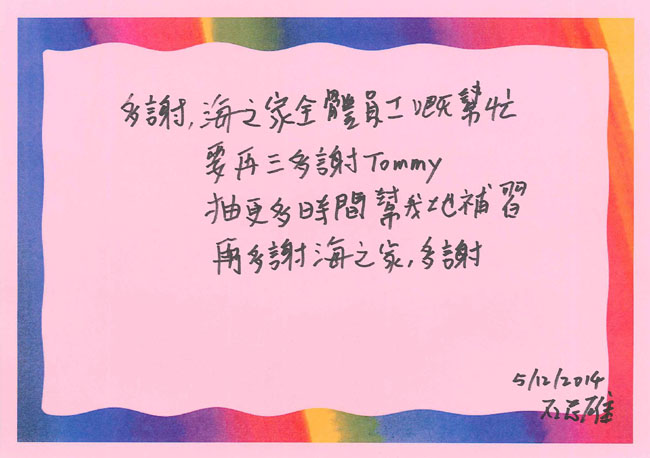 多謝,海之家全體員工嘅幫忙
要再三多謝Tommy
抽更多時間幫我地補習
再多謝海之家,多謝
5/12/2014
石志雄